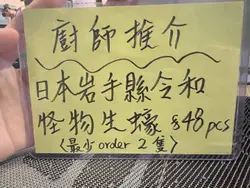 廚師推介
日本岩手縣令和
怪物生蠔 $48 pcs
〈最少order 2隻〉